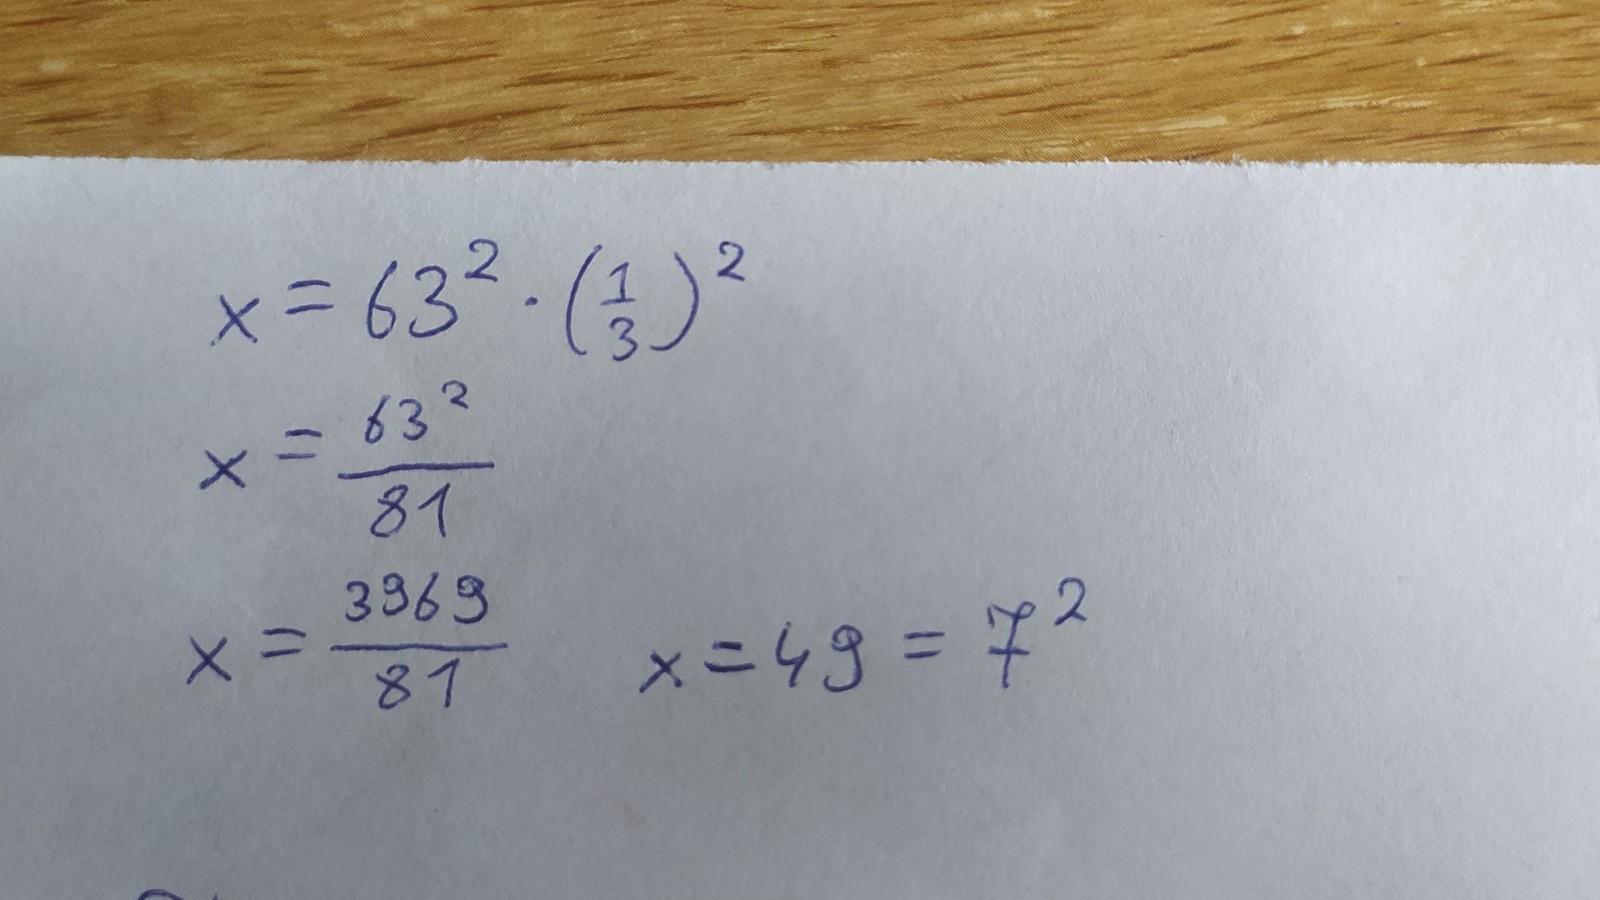 x = 63² · (1/3)²
x = 63²/81
x = 3969/81    x = 49 = 7²